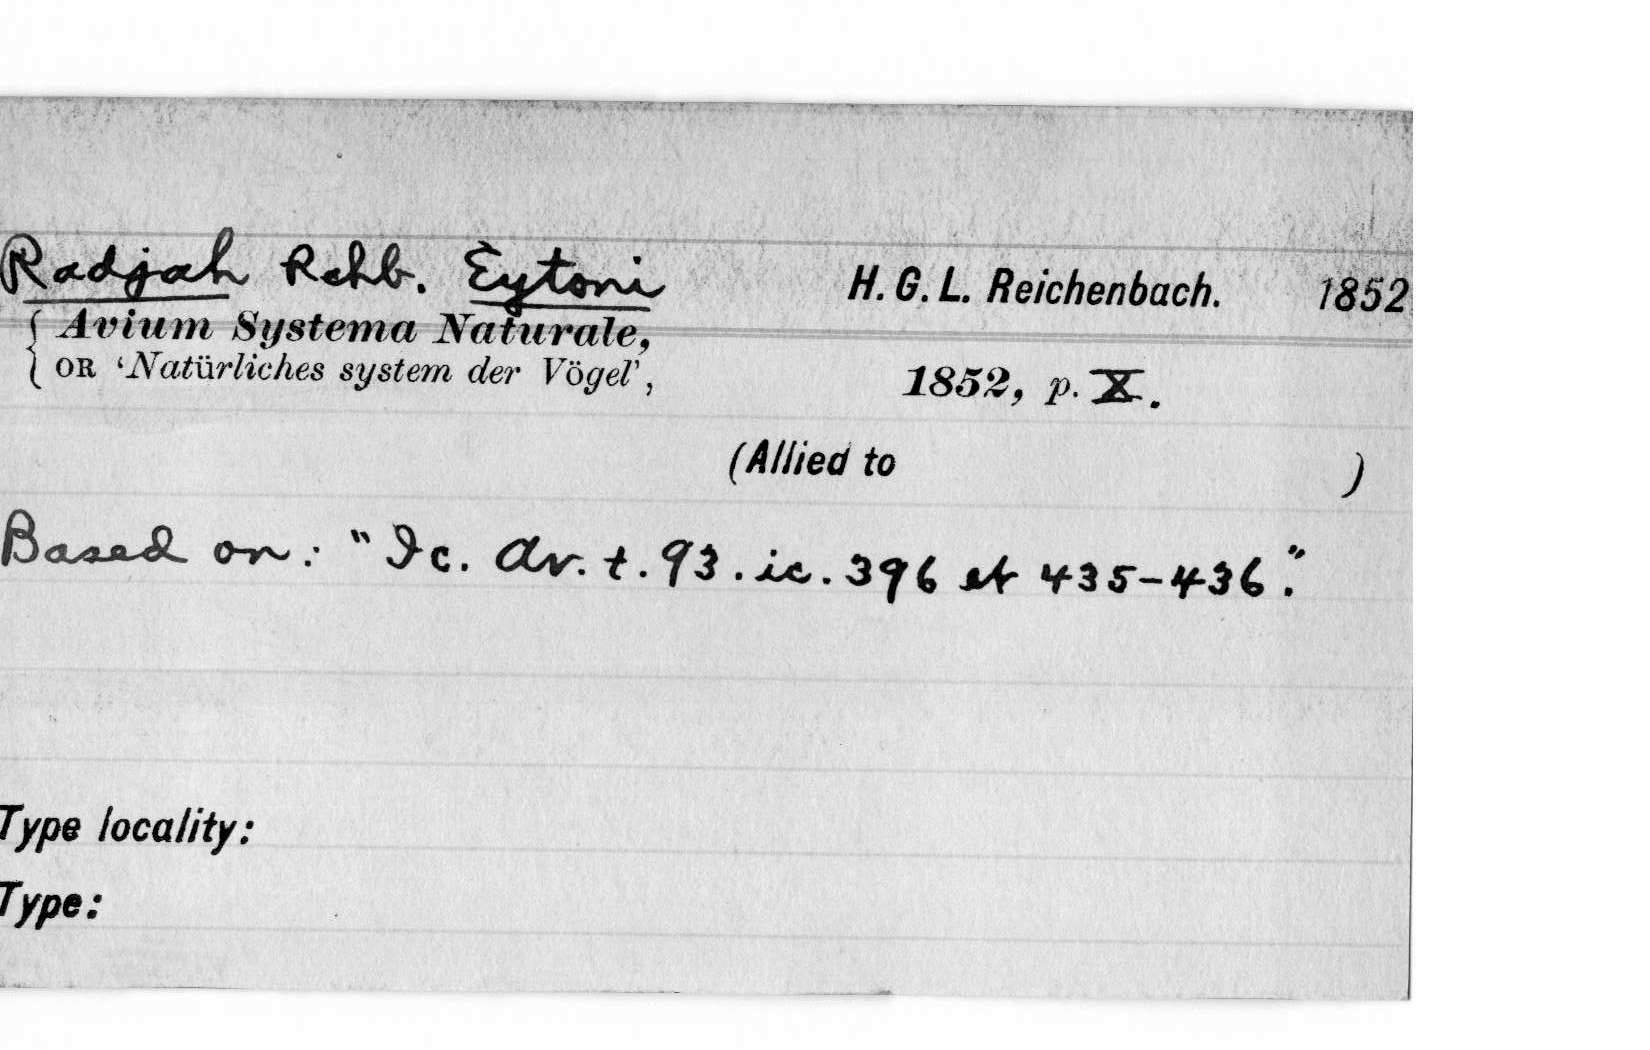 Radjah Rchb. Eytoni H. G. L. Reichenbach. 1852
{ Avium Systema Naturale,
OR ‘Natürliches system der Vögel’, 1852, p. X.
(Allied to )
Based on: "Ic. Av. t. 93. ic. 396 et 435-436."
Type locality:
Type: